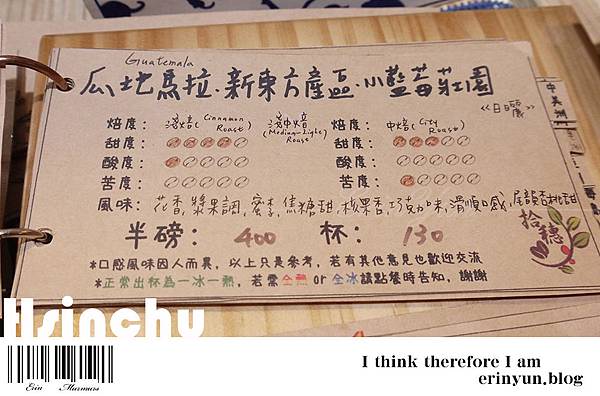 Guatemala
瓜地馬拉·新東方產區·小藍莓莊園
《日曬》
中美洲
焙度： 淺焙(Cinnamon Roast) 淺中焙(Medium-Light Roast) 焙度： 中焙(City Roast)
甜度： 甜度：
酸度： 酸度：
苦度： 苦度：
風味： 花香,漿果調,蜜李,焦糖甜,核果香,巧克力味,滑順口感,尾韻杏桃甜
半磅： 400 杯： 130
拾穗
*口感風味因人而異，以上只是參考，若有其他意見也歡迎交流
*正常出杯為一冰一熱，若需全熱 or 全冰請點餐時告知，謝謝
Hsinchu
Erin Murmurs
I think therefore I am
erinyun.blog